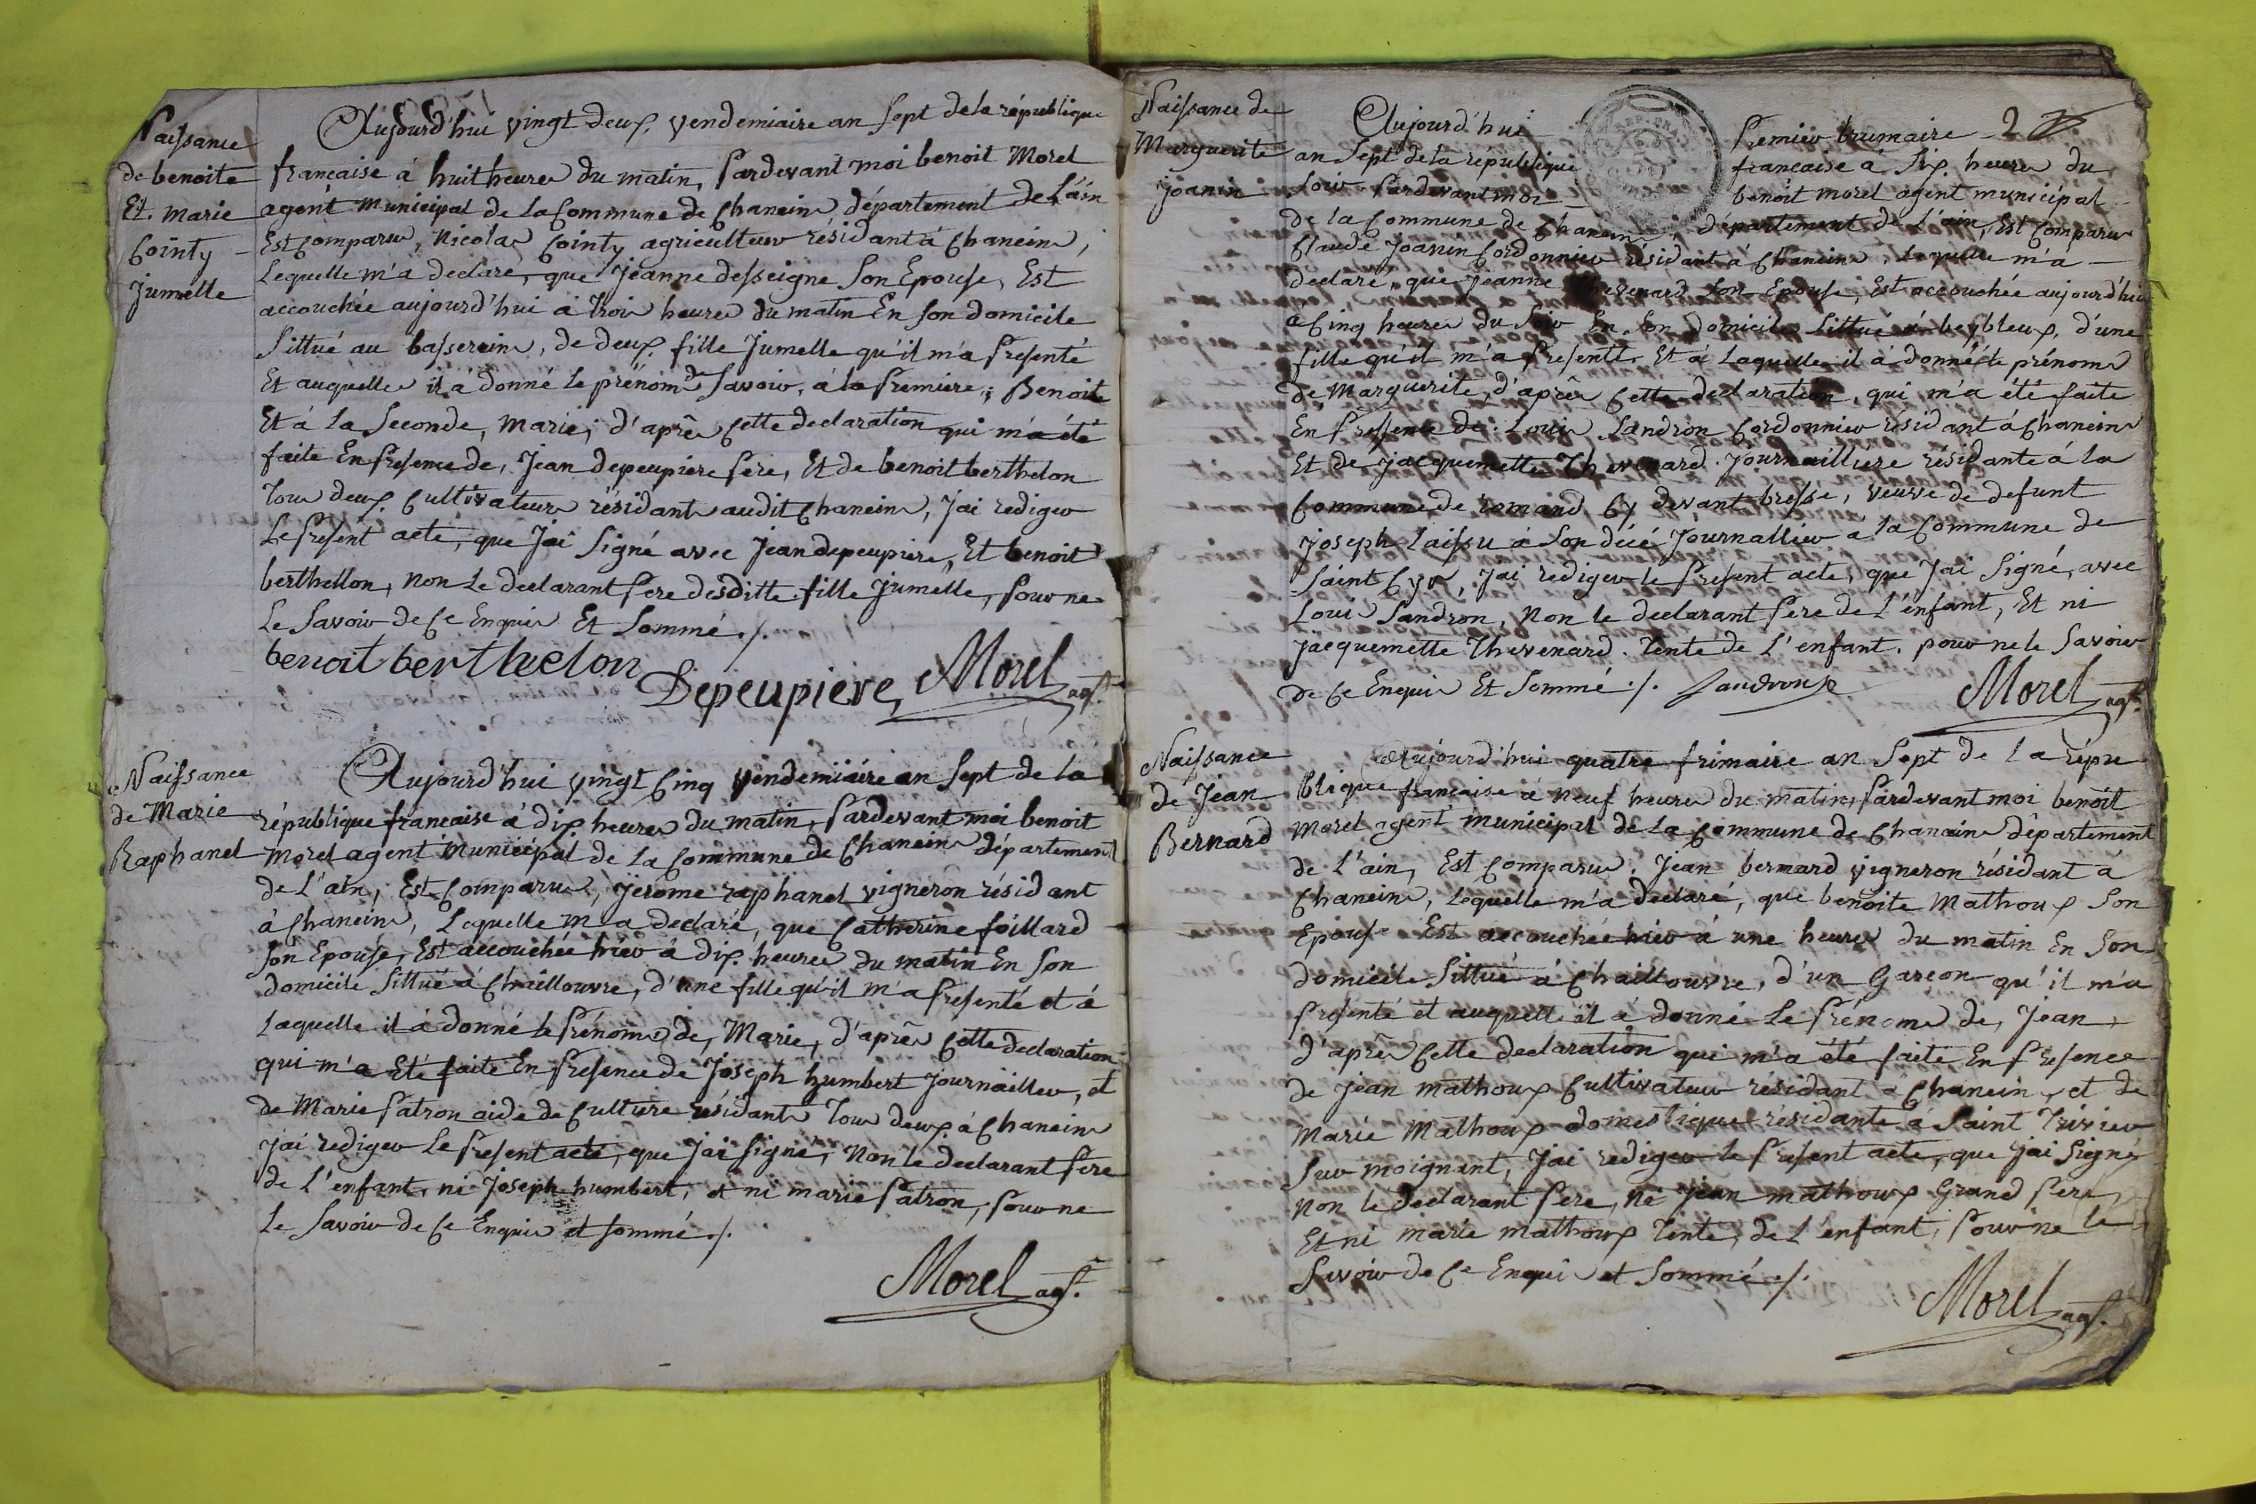 Naissance
de benoite
Et. Marie
Cointy
Jumelle
Aujourd'hui vingt deux vendemiaire an Sept de la république
francaise à huit heures du matin, Pardevant moi benoit Morel
agent Municipal de la Commune de Chanein département de L'ain
Est Comparu, Nicolas Cointy agriculteur résidant à Chanein,
Lequelle m'a declaré, que Jeanne desseigne Son Epouse, Est
accouchée aujourd'hui à trois heures du matin En Son domicile
Sittué au basserein, de deux fille Jumelle qu'il m'a Presenté
Et auquelles il à donné le prénom de Savoir, à la Premiere; Benoite
Et à La Seconde, Marie, d'après Cette declaration qui m'a été
faite En Presence de, Jean depeupiere Pere, Et de benoit berthelon
Tous deux Cultivateurs résidants audit Chanein, J'ai rediger
Le Present acte, que J'ai Signé avec Jean depeupiere, Et benoit
berthellon, Non Le declarant Pere desditte fille Jumelle, Pour ne
Le Savoir de Ce Enquis Et Sommé ./.
benoit berthelon
Depeupiere, Morel agt.
Naissance
de Marie
Raphanel
Aujourd'hui vingt Cinq vendemiaire an Sept de la
république francaise à dix heures du matin, Pardevant moi benoit
Morel agent Municipal de La Commune de Chanein département
de L'ain, Est Comparu, Jerome raphanel vigneron résidant
à Chanein, Lequelle m'a declaré, que Catherine foillard
Son Epouse, Est accouchée hier à dix heures du matin En Son
domicile Sittué à Chaillouvre, d'une fille qu'il m'a Presenté et à
Laquelle il à donné le Prénom de, Marie, d'après Cette declaration
qui m'a Eté faite En Presence de Joseph humbert Journailler, et
de Marie Patron aide de Culture résidants Tous deux à Chanein
J'ai rediger Le Present acte, que J'ai Signé, Non le declarant Pere
de L'enfant, ni Joseph humbert, et ni marie Patron, Pour ne
Le Savoir de Ce Enquis et Sommé ./.
Morel agt.
Naissance de
Marguerite
Joanin
2
Aujourd'hui Premier brumaire
an Sept de la république francaise à Six heures du
Soir Pardevant moi benoit morel agent municipal
de la Commune de Chanein, département de L'ain, Est Comparu
Claude Joanin Cordonnier résidant à Chanein, Lequelle m'a
declaré, que Jeanne Thevenard Son Epouse, Est accouchée aujourd'hui
à Cinq heures du Soir En Son domicile Sittué à beybleux, d'une
fille qu'il m'a Presenté Et à Laquelle il à donné le prénom
de Marguerite, d'après Cette declaration, qui m'a été faite
En Pressence de, Louis Sandron Cordonnier résidant à Chanein
Et de Jacquemette Thevenard Journailliere résidante à la
Commune de romand Cy devant bresse, veuve de defunt
Joseph Laissu à Son décé Journallier à la Commune de
Saint Cyr, J'ai rediger le Present acte, que J'ai Signé, avec
Louis Sandron, Non le declarant Pere de L'enfant, Et ni
Jacquemette Thevenard Tente de L'enfant, pour ne le Savoir
de Ce Enquis Et Sommé ./. Sandron
Morel agt.
Naissance
de Jean
Bernard
Aujourd'hui quatre frimaire an Sept de la répu
blique francaise à Neuf heures du matin, Pardevant moi benoit
Morel agent municipal de La Commune de Chanein département
de L'ain, Est Comparu, Jean bernard vigneron résidant à
Chanein, Lequelle m'a declaré, que benoite Mathoux Son
Epouse Est accouchée hier à une heures du matin En Son
domicile Sittué à Chaillouvre, d'un Garçon qu'il m'a
Presenté et auquelle il à donné Le Prénom de, Jean,
d'après Cette declaration qui m'a été faite En Presence
de Jean mathoux Cultivateur résidant à Chanein, et de
Marie Mathoux domestique résidante à Saint Trivier
Sur moignant, J'ai rediger le Present acte, que J'ai Signé
Non le declarant Pere, Ni Jean mathoux Grand Pere,
Et ni marie mathoux Tente, de L'enfant, Pour ne le
Savoir de Ce Enquis et Sommé ./.
Morel agt.